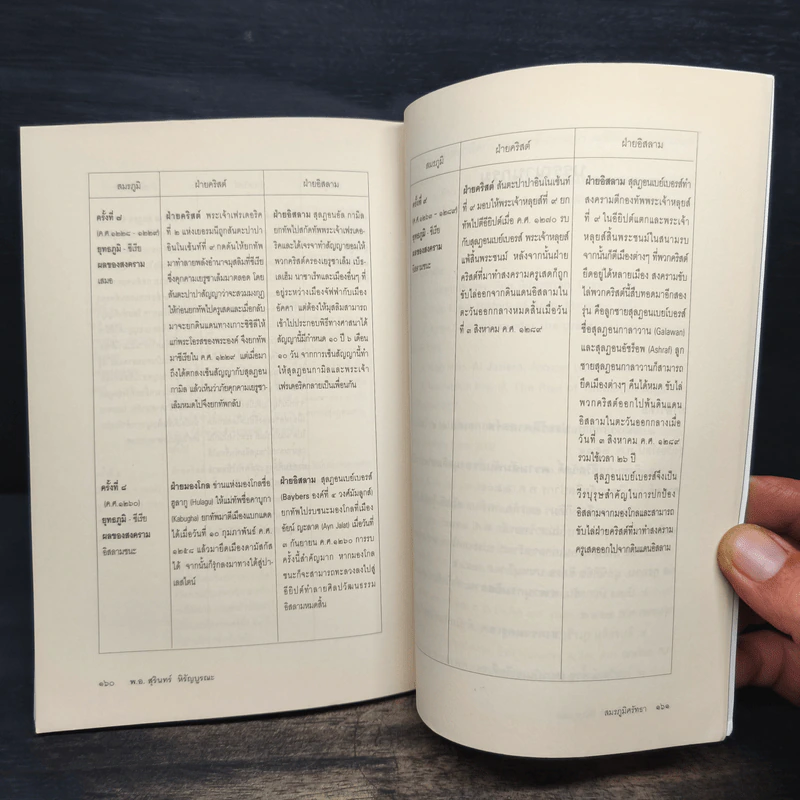 สมรภูมิ
ฝ่ายคริสต์
ฝ่ายอิสลาม
ครั้งที่ ๗
(ค.ศ.๑๒๒๘ - ๑๒๒๙)
ยุทธภูมิ - ซีเรีย
ผลของสงคราม
เสมอ
ฝ่ายคริสต์ พระเจ้าเฟรเดอริค
ที่ ๒ แห่งเยอรมนีถูกสันตะปาปา
อินโนเซ้นท์ที่ ๙ กดดันให้ยกทัพ
มาทำลายพลังอำนาจมุสลิมที่ซีเรีย
ซึ่งคุกคามเยรูซาเล็มมาตลอด โดย
สันตะปาปาสัญญาว่าจะสวมมงกุฎ
ให้ก่อนยกทัพไปครูเสดและเมื่อกลับ
มาจะยกดินแดนทางเกาะซิซิลีให้
แก่พระโอรสของพระองค์ จึงยกทัพ
มาซีเรียใน ค.ศ. ๑๒๒๙ แต่เมื่อมา
ถึงได้ตกลงเซ็นสัญญากับสุลฏอน
กามิล แล้วเห็นว่าภัยคุกคามเยรูซา-
เล็มหมดไปจึงยกทัพกลับ
ฝ่ายอิสลาม สุลฏอนอัล กามิล
ยกทัพไปสกัดทัพพระเจ้าเฟรเดอ-
ริคและได้เจรจาทำสัญญายอมให้
พวกคริสต์ครองเยรูซาเล็ม เบ็ธ-
เลเฮ็ม นาซาเร็ทและเมืองอื่นๆ ที่
อยู่ระหว่างเมืองจัฟฟ่ากับเมือง
อัคคา แต่ต้องให้มุสลิมสามารถ
เข้าไปประกอบพิธีทางศาสนาได้
สัญญานี้มีกำหนด ๑๐ ปี ๖ เดือน
๑๐ วัน จากการเซ็นสัญญานี้ทำ
ให้สุลฏอนกามิลและพระเจ้า
เฟรเดอริคกลายเป็นเพื่อนกัน
ครั้งที่ ๘
(ค.ศ.๑๒๖๐)
ยุทธภูมิ - ซีเรีย
ผลของสงคราม
อิสลามชนะ
ฝ่ายมองโกล ข่านแห่งมองโกลชื่อ
ฮูลากู (Hulagu) ให้แม่ทัพชื่อคาบูกา
(Kabugha) ยกทัพมาตีเมืองแบกแดด
ได้เมื่อวันที่ ๑๐ กุมภาพันธ์ ค.ศ.
๑๒๕๘ แล้วมายึดเมืองดามัสกัส
ได้ จากนั้นก็รุกลงมาทางใต้สู่ปา-
เลสไตน์
ฝ่ายอิสลาม สุลฏอนเบย์เบอรส์
(Baybers องค์ที่ ๔ วงศ์มัมลูกส์)
ยกทัพไปรบชนะมองโกลที่เมือง
อัยน์ ญะลาต (Ayn Jalat) เมื่อวันที่
๓ กันยายน ค.ศ. ๑๒๖๐ การรบ
ครั้งนี้สำคัญมาก หากมองโกล
ชนะก็จะสามารถทะลวงลงไปสู่
อียิปต์ทำลายศิลปวัฒนธรรม
อิสลามหมดสิ้น
๑๖๐ พ.อ. สุรินทร์ หิรัญบูรณะ
สมรภูมิ
ฝ่ายคริสต์
ฝ่ายอิสลาม
ครั้งที่ ๙
ยุทธภูมิ - ซีเรีย
ผลของสงคราม
อิสลามชนะ
ฝ่ายคริสต์ สันตะปาปาอินโนเซ้นท์
ที่ ๙ มอบให้พระเจ้าหลุยส์ที่ ๙ ยก
ทัพไปตีอียิปต์เมื่อ ค.ศ. ๑๒๗๐ รบ
กับสุลฏอนเบย์เบอรส์ พระเจ้าหลุยส์
แพ้สิ้นพระชนม์ หลังจากนั้นฝ่าย
คริสต์ที่มาทำสงครามครูเสดก็ถูก
ขับไล่ออกจากดินแดนอิสลามใน
ตะวันออกกลางหมดสิ้นเมื่อวัน
ที่ ๓ สิงหาคม ค.ศ. ๑๒๘๙
ฝ่ายอิสลาม สุลฏอนเบย์เบอรส์ทำ
สงครามตีกองทัพพระเจ้าหลุยส์
ที่ ๙ ในอียิปต์แตกและพระเจ้า
หลุยส์สิ้นพระชนม์ในสนามรบ
จากนั้นก็ตีเมืองต่างๆ ที่พวกคริสต์
ยึดอยู่ได้หลายเมือง สงครามขับ
ไล่พวกคริสต์นี้สืบทอดมาอีกสอง
รุ่น คือลูกชายสุลฏอนเบย์เบอรส์
ชื่อสุลฏอนกาลาวาน (Galawan)
และสุลฏอนอัชร็อพ (Ashraf) ลูก
ชายสุลฏอนกาลาวานก็สามารถ
ยึดเมืองต่างๆ คืนได้หมด ขับไล่
พวกคริสต์ออกไปพ้นดินแดน
อิสลามในตะวันออกกลางเมื่อ
วันที่ ๓ สิงหาคม ค.ศ. ๑๒๘๙
รวมใช้เวลา ๒๖ ปี
สุลฏอนเบย์เบอรส์จึงเป็น
วีรบุรุษสำคัญในการปกป้อง
อิสลามจากมองโกลและสามารถ
ขับไล่ฝ่ายคริสต์ที่มาทำสงคราม
ครูเสดออกไปจากดินแดนอิสลาม
สมรภูมิศรัทธา ๑๖๑